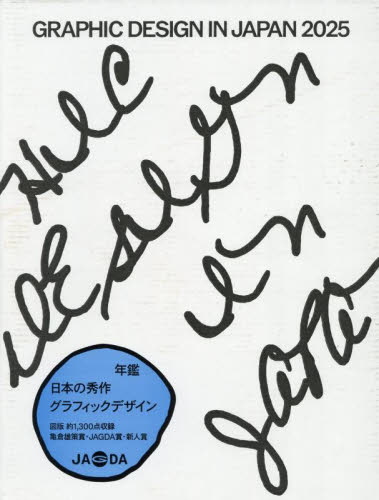 GRAPHIC DESIGN IN JAPAN 2025
HIC
DESIGN
in
JAPA
年鑑
日本の秀作
グラフィックデザイン
図版 約1,300点収録
亀倉雄策賞・JAGDA賞・新人賞
JAGDA